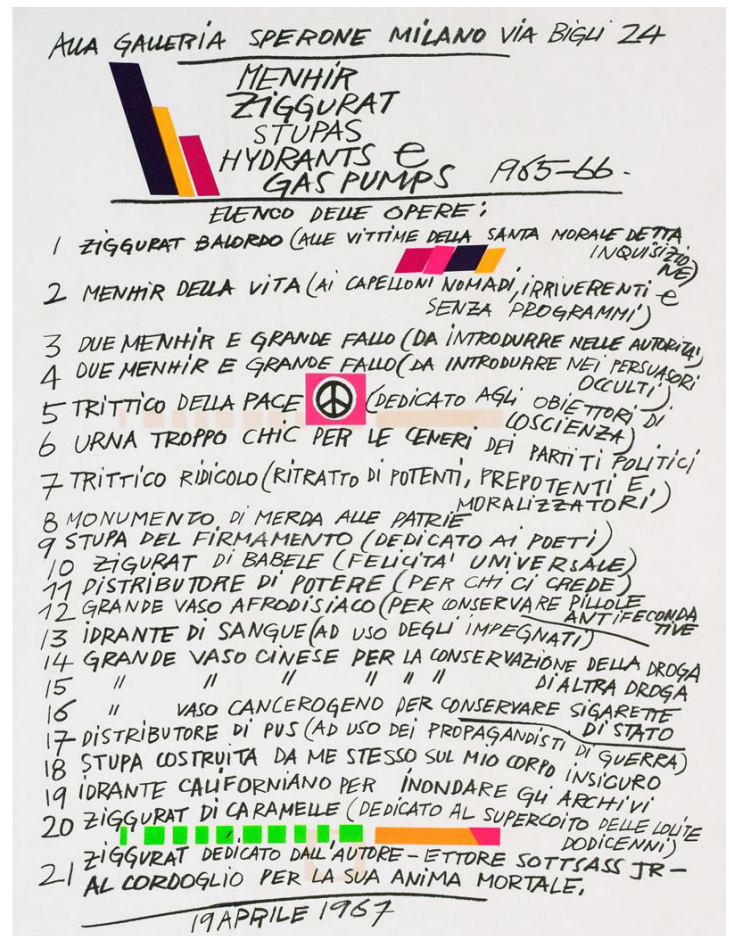 ALLA GALLERIA SPERONE MILANO VIA BIGLI 24
MENHIR
ZIGGURAT
STUPAS
HYDRANTS e
GAS PUMPS 1965-66.
ELENCO DELLE OPERE:
1 ZIGGURAT BALORDO (ALLE VITTIME DELLA SANTA MORALE DETTA
INQUISIZIO
NE)
2 MENHIR DELLA VITA (AI CAPELLONI NOMADI, IRRIVERENTI e
SENZA PROGRAMMI)
3 DUE MENHIR E GRANDE FALLO (DA INTRODURRE NELLE AUTORITA')
4 DUE MENHIR E GRANDE FALLO (DA INTRODURRE NEI PERSUASORI
OCCULTI)
5 TRITTICO DELLA PACE (DEDICATO AGLI OBIETTORI DI
COSCIENZA)
6 URNA TROPPO CHIC PER LE CENERI DEI PARTITI POLITICI
7 TRITTICO RIDICOLO (RITRATTO DI POTENTI, PREPOTENTI E
MORALIZZATORI)
8 MONUMENTO DI MERDA ALLE PATRIE
9 STUPA DEL FIRMAMENTO (DEDICATO AI POETI)
10 ZIGURAT DI BABELE (FELICITA' UNIVERSALE)
11 DISTRIBUTORE DI POTERE (PER CHI CI CREDE)
12 GRANDE VASO AFRODISIACO (PER CONSERVARE PILLOLE
ANTIFECONDA
TIVE
13 IDRANTE DI SANGUE (AD USO DEGLI IMPEGNATI)
14 GRANDE VASO CINESE PER LA CONSERVAZIONE DELLA DROGA
15 " " " " " " DI ALTRA DROGA
16 " VASO CANCEROGENO PER CONSERVARE SIGARETTE
DI STATO
17 DISTRIBUTORE DI PUS (AD USO DEI PROPAGANDISTI DI GUERRA)
18 STUPA COSTRUITA DA ME STESSO SUL MIO CORPO INSICURO
19 IDRANTE CALIFORNIANO PER INONDARE GLI ARCHIVI
20 ZIGGURAT DI CARAMELLE (DEDICATO AL SUPERCOITO DELLE LOLITE
DODICENNI)
21 ZIGGURAT DEDICATO DALL'AUTORE - ETTORE SOTTSASS JR -
AL CORDOGLIO PER LA SUA ANIMA MORTALE.
19 APRILE 1967